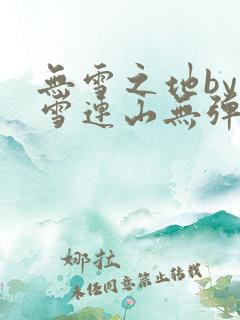 無雪之地by
雪連山無彈
娜拉
未任同意禁止转载